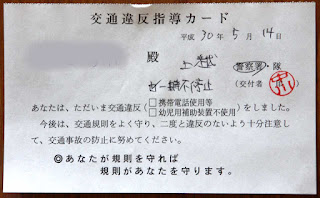 交通違反指導カード
平成 30 年 5 月 14 日
殿 上 警察署・隊
一時不停止 (交付者
あなたは、ただいま交通違反(□携帯電話使用等 □幼児用補助装置不使用)をしました。
今後は、交通規則をよく守り、二度と違反のないよう十分注意し
て、交通事故の防止に努めてください。
◎あなたが規則を守れば
規則があなたを守ります。